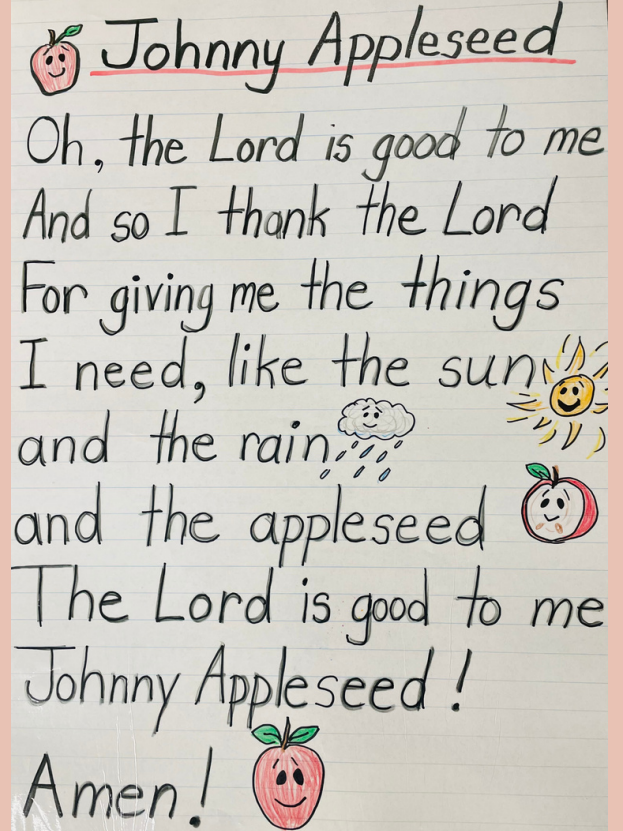 Johnny Appleseed
Oh, the Lord is good to me
And so I thank the Lord
For giving me the things
I need, like the sun
and the rain
and the appleseed
The Lord is good to me
Johnny Appleseed!
Amen!